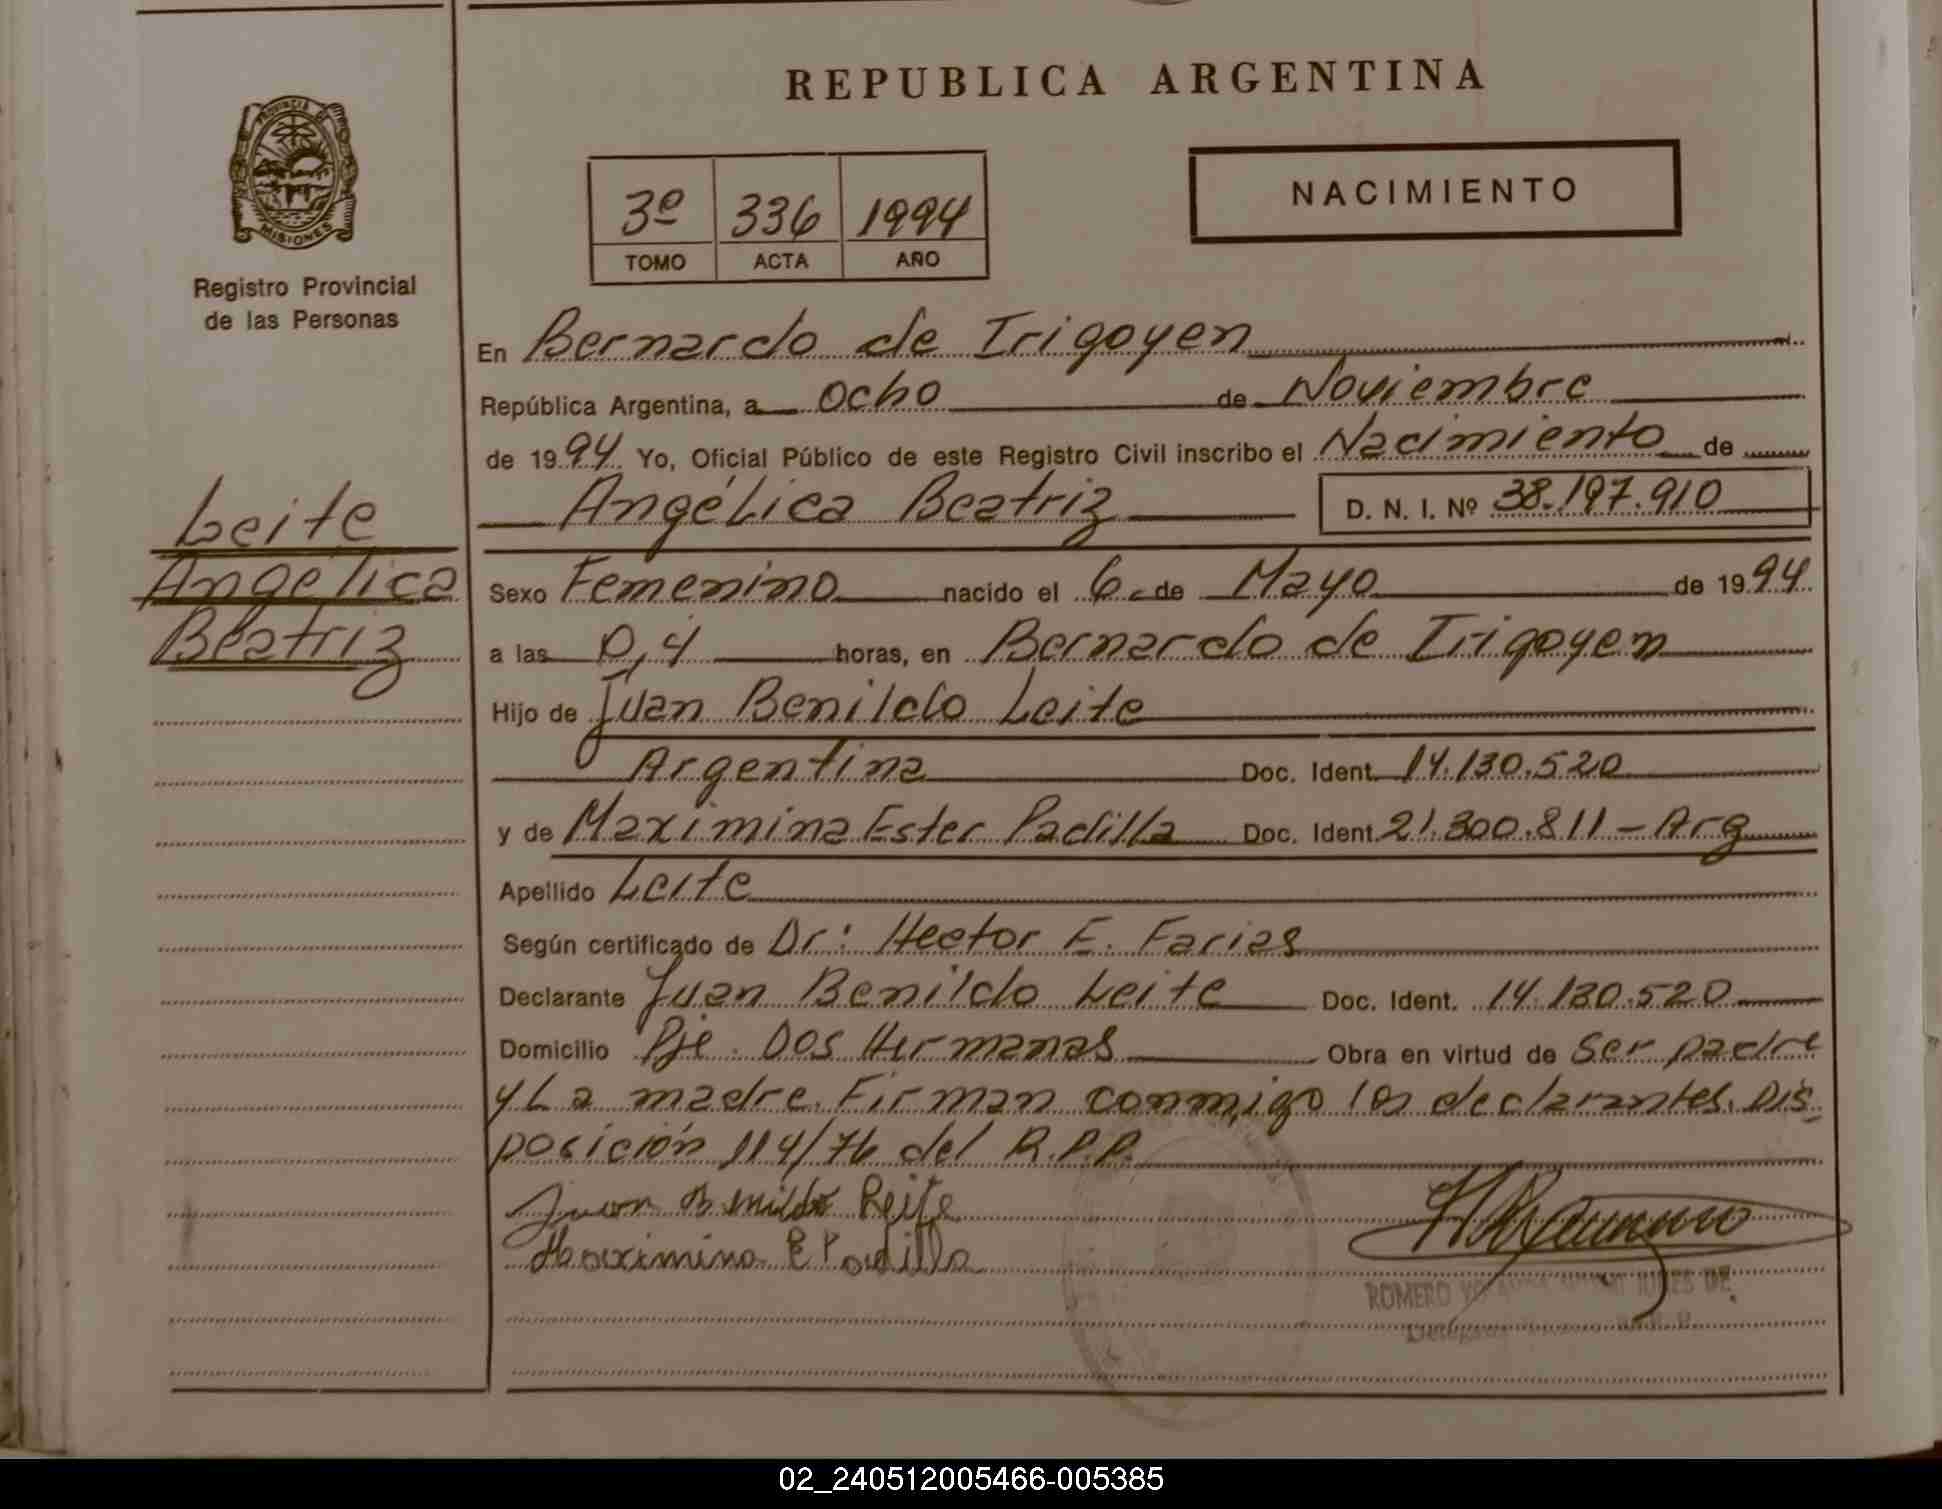 REPUBLICA ARGENTINA
PROVINCIA DE
MISIONES
Registro Provincial
de las Personas
Leite
Angélica
Beatriz
3º 336 1994
TOMO ACTA AÑO
NACIMIENTO
En Bernardo de Irigoyen
República Argentina, a Ocho de Noviembre
de 1994 Yo, Oficial Público de este Registro Civil inscribo el Nacimiento de
Angélica Beatriz D. N. I. Nº 38.197.910
Sexo Femenino nacido el 6 de Mayo de 1994
a las 0,4 horas, en Bernardo de Irigoyen
Hijo de Juan Benildo Leite
Argentina Doc. Ident. 14.130.520
y de Maximina Ester Padilla Doc. Ident. 21.300.811 - Arg
Apellido Leite
Según certificado de Dr: Hector E. Farias
Declarante Juan Benildo Leite Doc. Ident. 14.130.520
Domicilio Pje. Dos Hermanas Obra en virtud de Ser padre
y La madre. Firman conmigo los declarantes. Dis
posición 114/76 del R.P.P.
Juan Benildo Leite
Maximina E Padilla
ROMERO DE
02_240512005466-005385